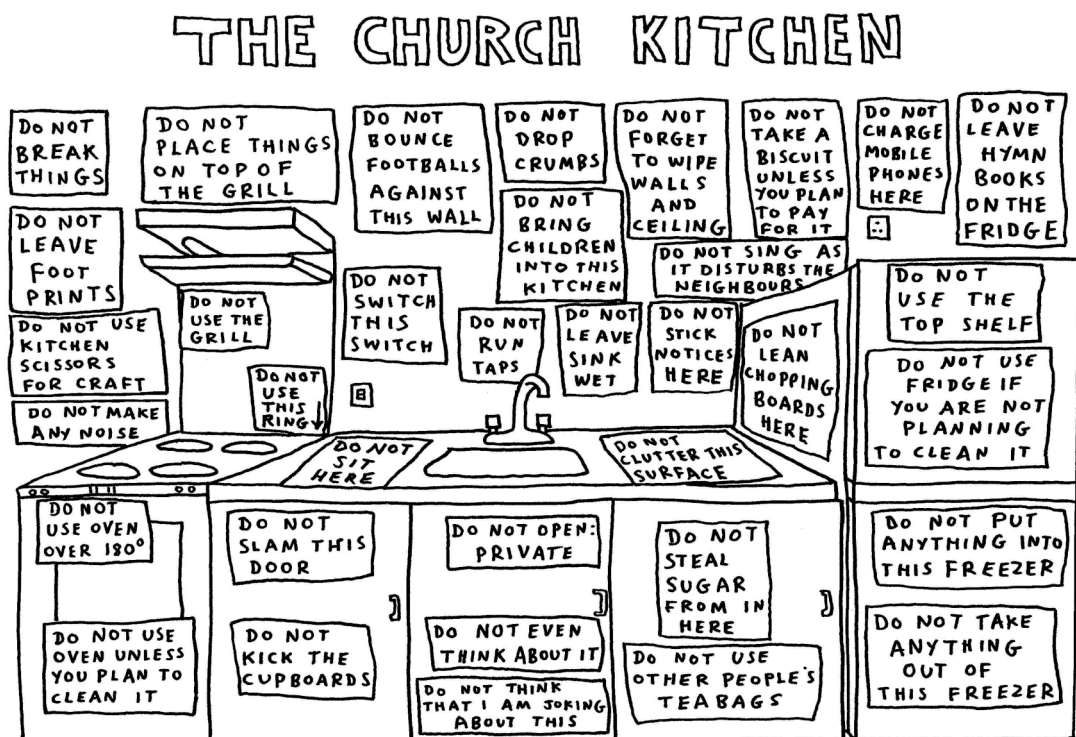 THE CHURCH KITCHEN
DO NOT
BREAK
THINGS
DO NOT
PLACE THINGS
ON TOP OF
THE GRILL
DO NOT
BOUNCE
FOOTBALLS
AGAINST
THIS WALL
DO NOT
DROP
CRUMBS
DO NOT
FORGET
TO WIPE
WALLS
AND
CEILING
DO NOT
TAKE A
BISCUIT
UNLESS
YOU PLAN
TO PAY
FOR IT
DO NOT
CHARGE
MOBILE
PHONES
HERE
DO NOT
LEAVE
HYMN
BOOKS
ON THE
FRIDGE
DO NOT
LEAVE
FOOT
PRINTS
DO NOT
BRING
CHILDREN
INTO THIS
KITCHEN
DO NOT SING AS
IT DISTURBS THE
NEIGHBOURS
DO NOT
USE THE
GRILL
DO NOT
SWITCH
THIS
SWITCH
DO NOT
RUN
TAPS
DO NOT
LEAVE
SINK
WET
DO NOT
STICK
NOTICES
HERE
DO NOT
LEAN
CHOPPING
BOARDS
HERE
DO NOT
USE THE
TOP SHELF
DO NOT USE
KITCHEN
SCISSORS
FOR CRAFT
DO NOT
USE
THIS
RING
DO NOT USE
FRIDGE IF
YOU ARE NOT
PLANNING
TO CLEAN IT
DO NOT MAKE
ANY NOISE
DO NOT
SIT
HERE
DO NOT
CLUTTER THIS
SURFACE
DO NOT
USE OVEN
OVER 180°
DO NOT
SLAM THIS
DOOR
DO NOT OPEN:
PRIVATE
DO NOT
STEAL
SUGAR
FROM IN
HERE
DO NOT PUT
ANYTHING INTO
THIS FREEZER
DO NOT USE
OVEN UNLESS
YOU PLAN TO
CLEAN IT
DO NOT
KICK THE
CUPBOARDS
DO NOT EVEN
THINK ABOUT IT
DO NOT THINK
THAT I AM JOKING
ABOUT THIS
DO NOT USE
OTHER PEOPLE'S
TEABAGS
DO NOT TAKE
ANYTHING
OUT OF
THIS FREEZER